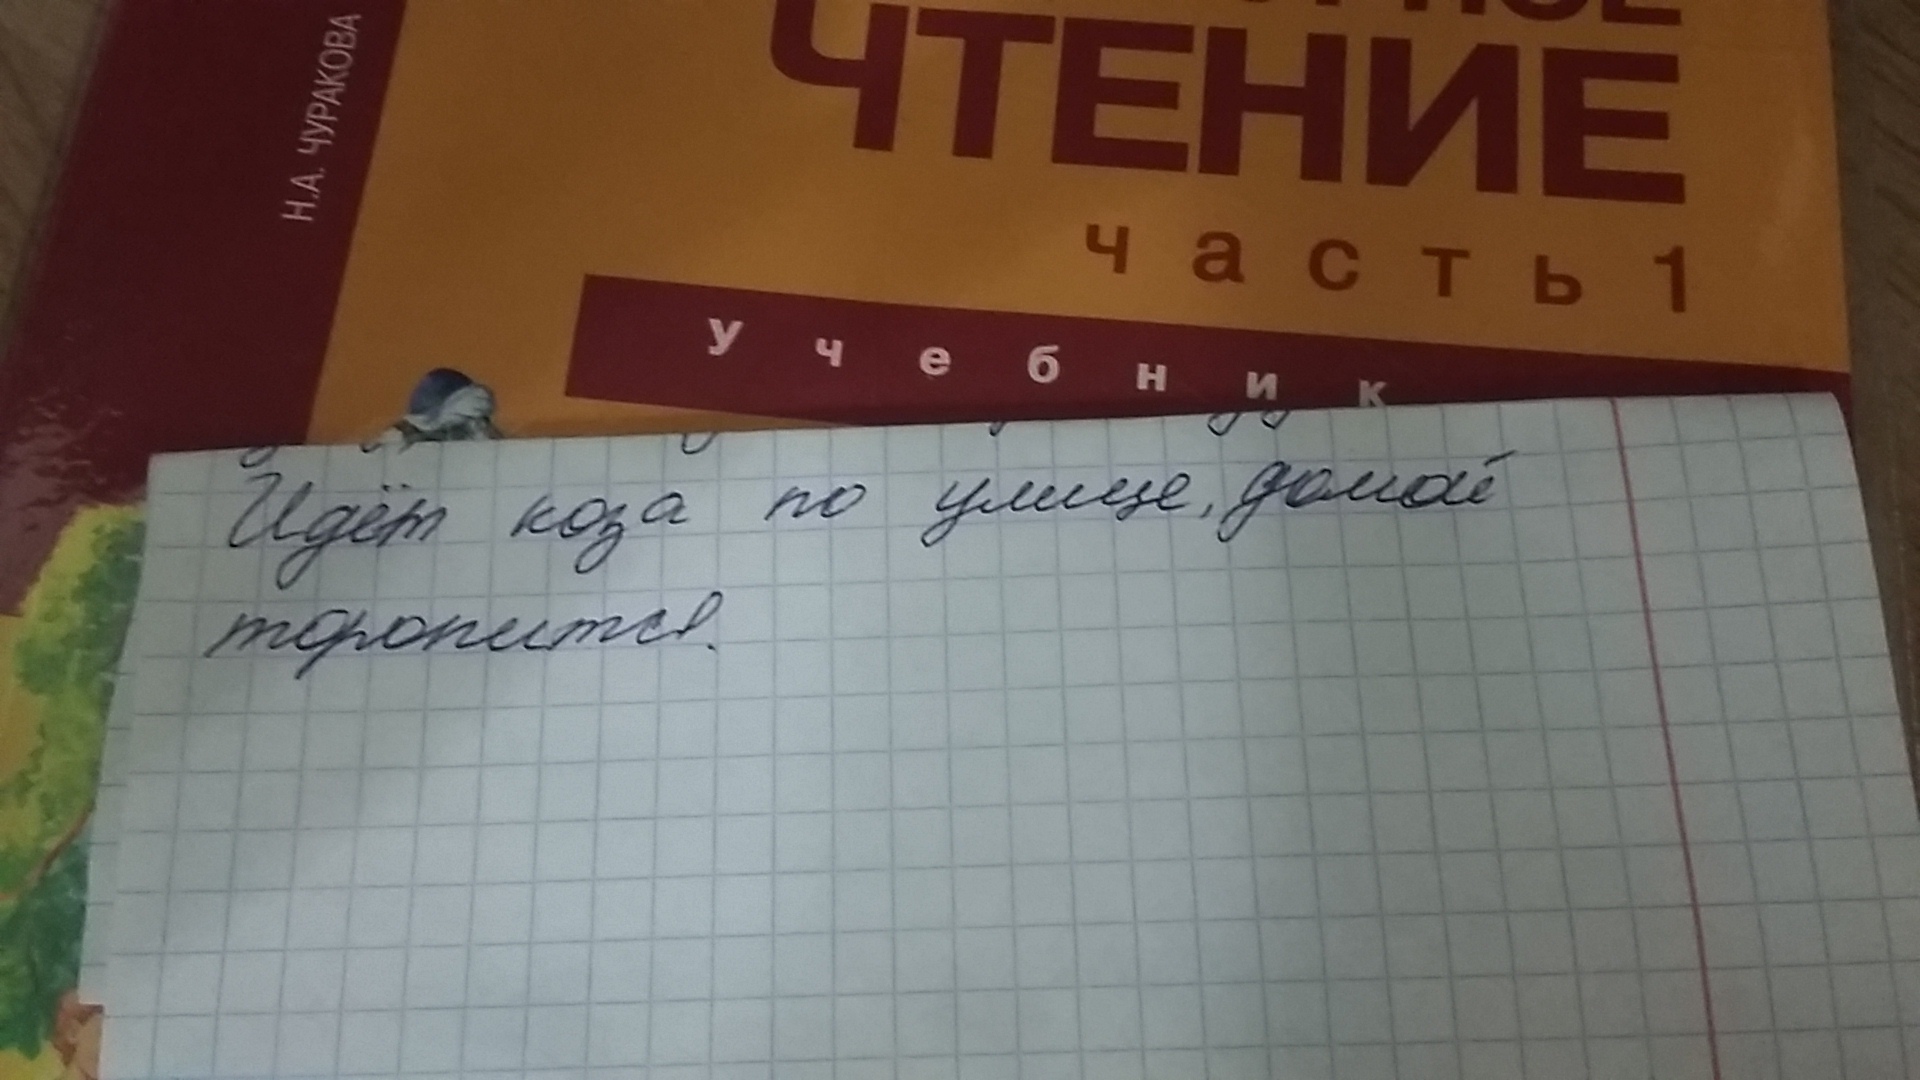 Н.А. ЧУРАКОВА
ЧТЕНИЕ
часть 1
Учебник
Идёт коза по улице, домой
торопится.